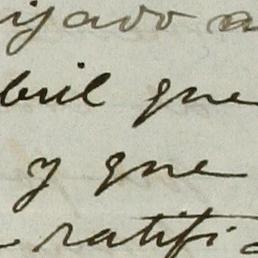 ijado a
bril que
y que
ratifi